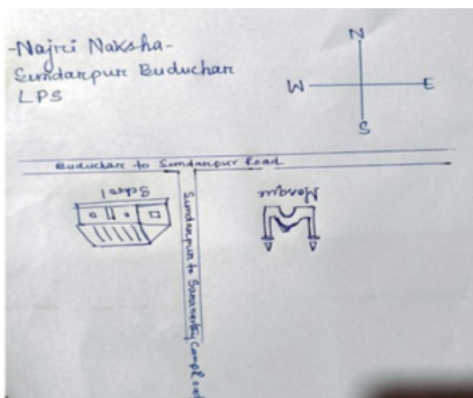 -Najri Naksha-
Sundarpur Buduchar
LPS
N
W
E
S
Buduchar to Sundarpur Road
School
Mosque
Sundarpur to
Camp